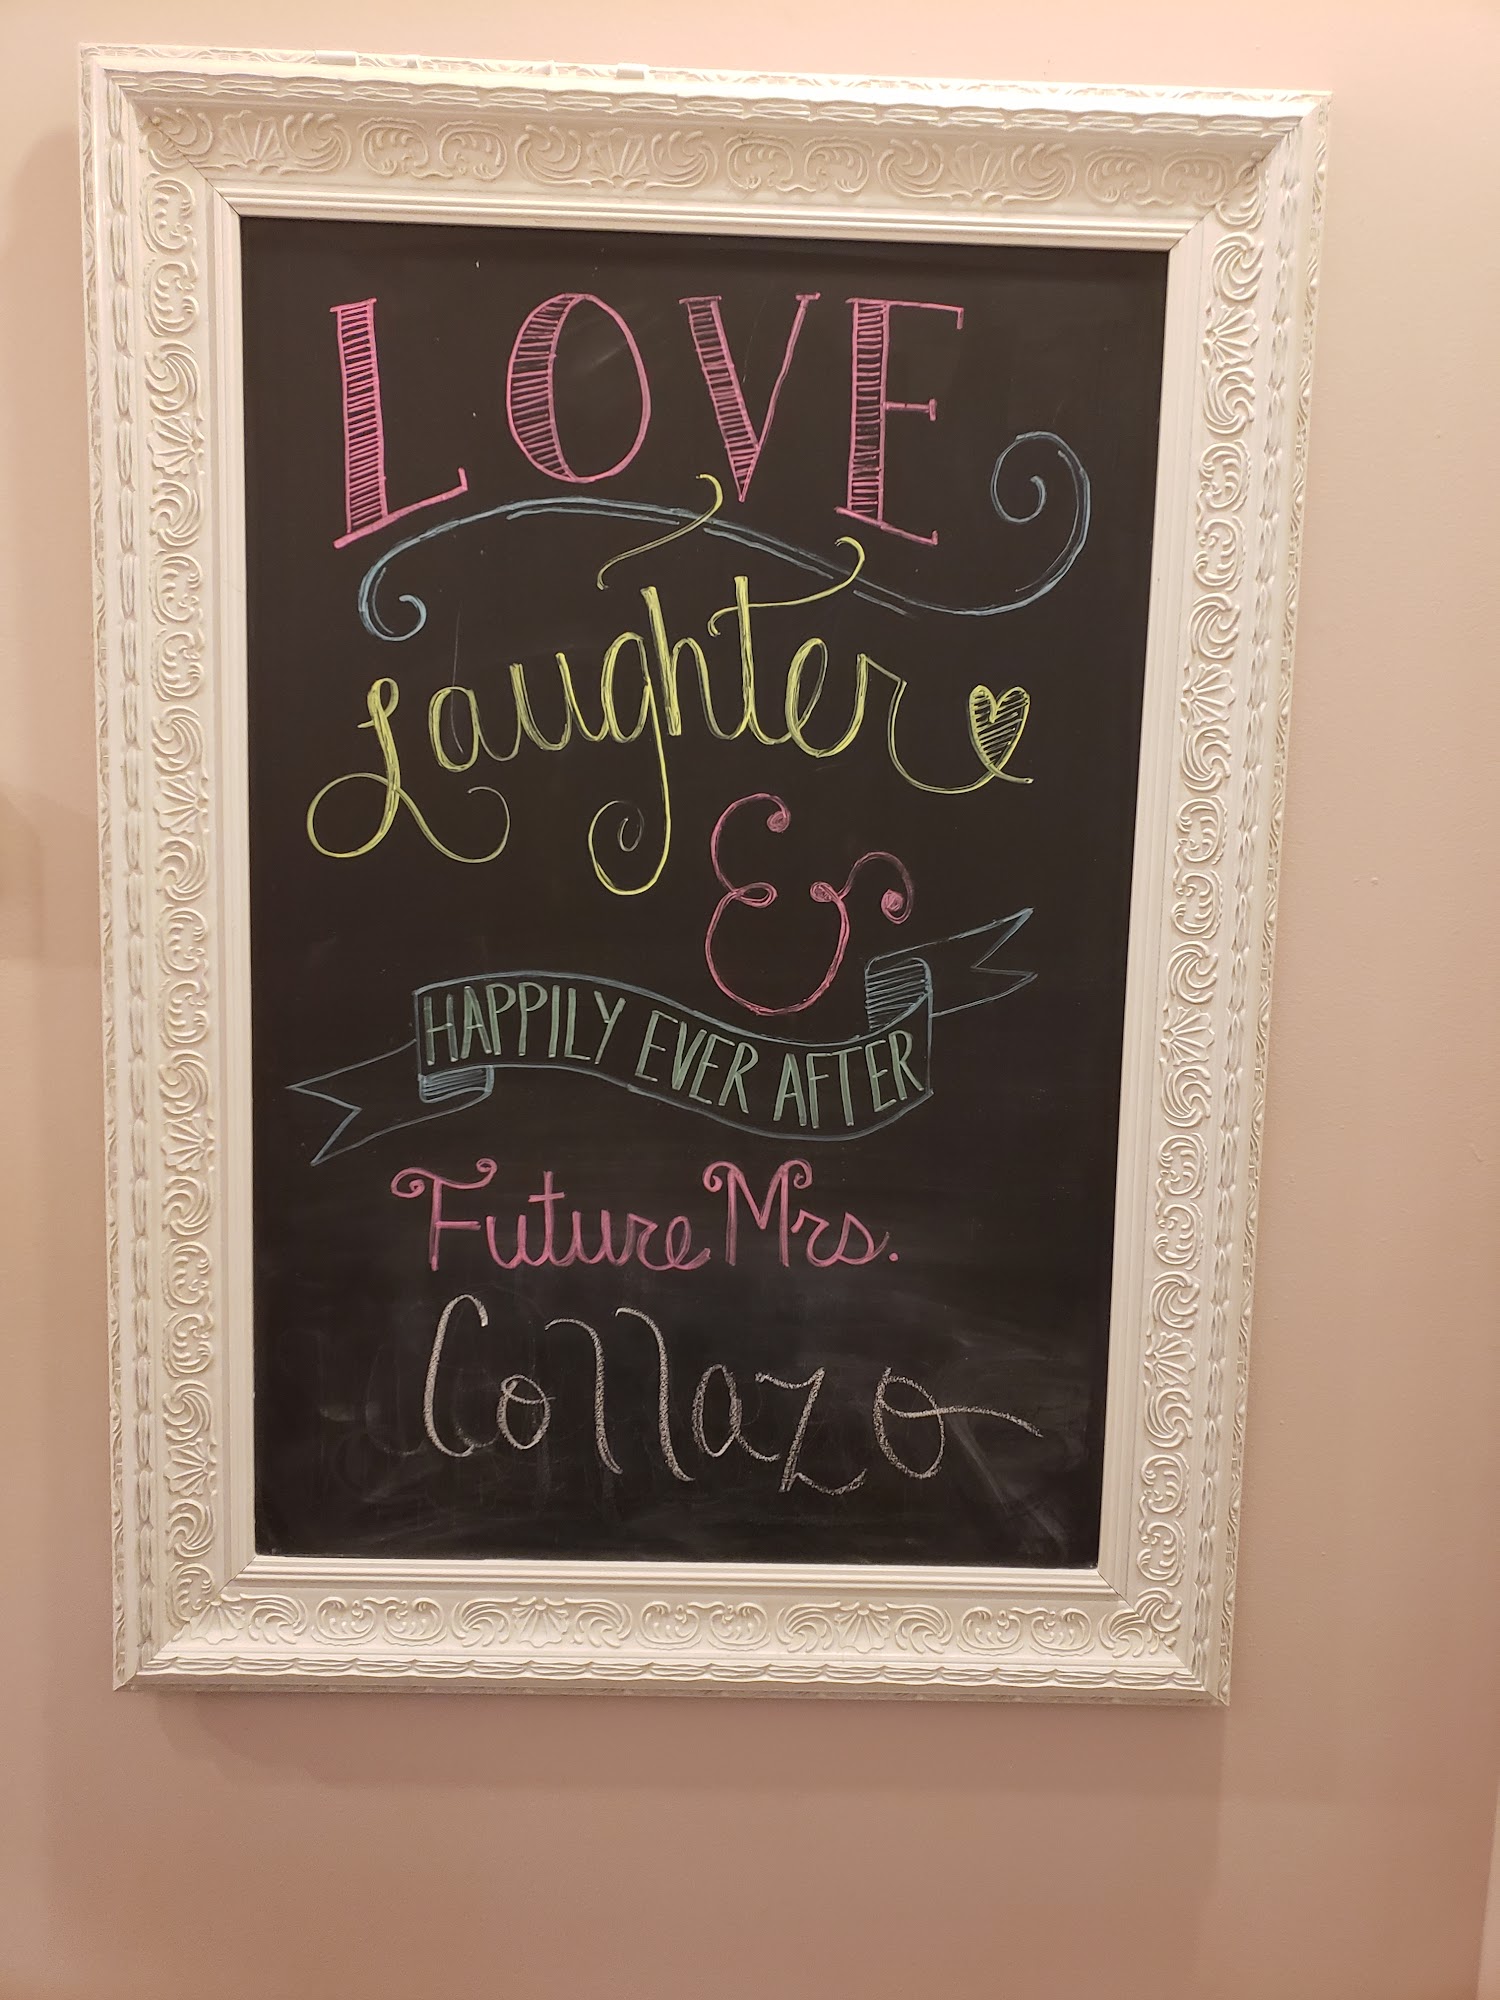 LOVE
Laughter
&
HAPPILY EVER AFTER
Future Mrs.
Collazo